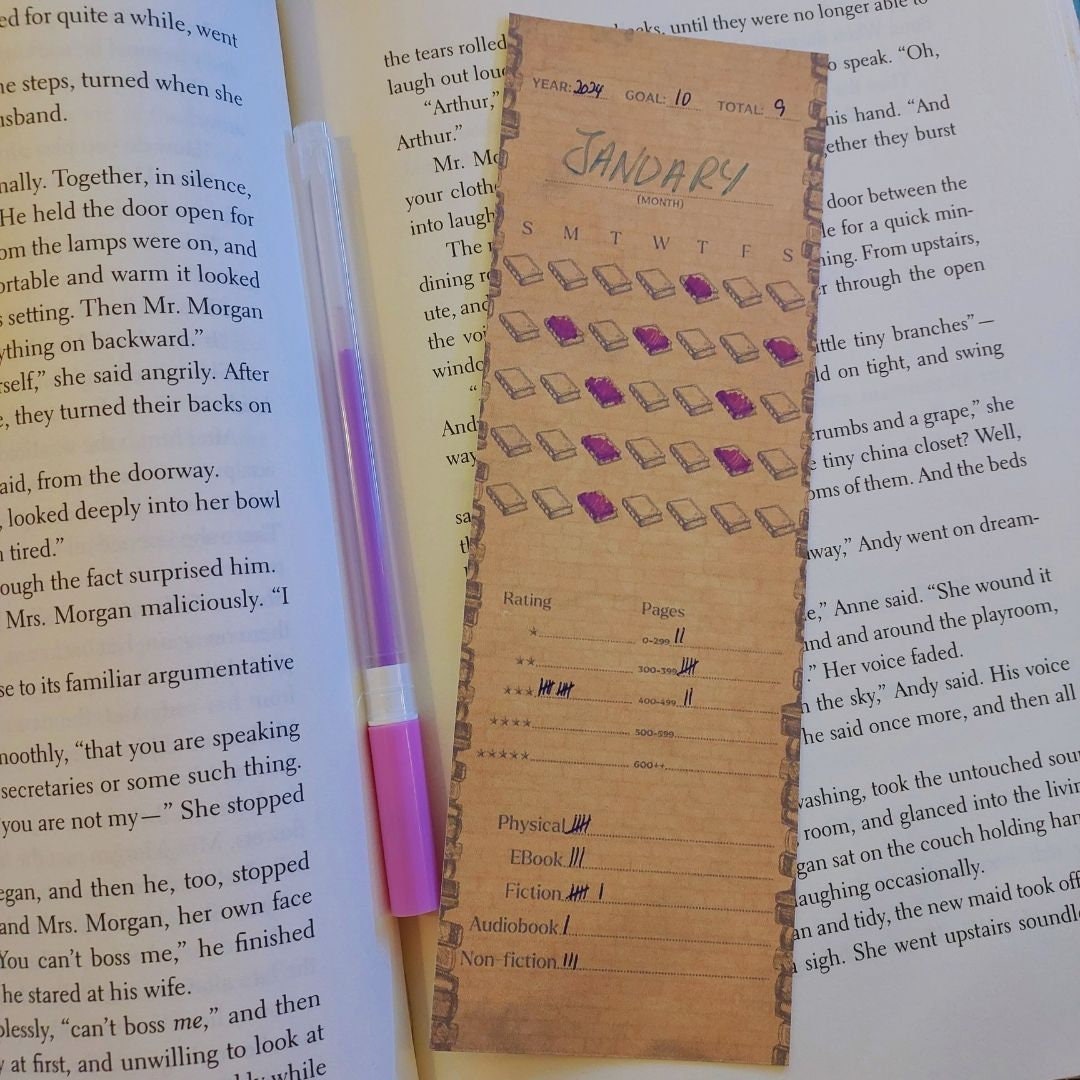 ed for quite a while, went
he steps, turned when she
usband.
nally. Together, in silence,
He held the door open for
om the lamps were on, and
ortable and warm it looked
s setting. Then Mr. Morgan
ything on backward.”
rself,” she said angrily. After
e, they turned their backs on
aid, from the doorway.
, looked deeply into her bowl
n tired.”
ough the fact surprised him.
Mrs. Morgan maliciously. “I
se to its familiar argumentative
moothly, “that you are speaking
secretaries or some such thing.
you are not my—” She stopped
egan, and then he, too, stopped
and Mrs. Morgan, her own face
You can’t boss me,” he finished
he stared at his wife.
plessly, “can’t boss me,” and then
y at first, and unwilling to look at
while
YEAR: 2024 GOAL: 10 TOTAL: 9
JANUARY
(MONTH)
S M T W T F S
Rating
★
★★
★★★
★★★★
★★★★★
Pages
0-299 ||
300-399
400-499 ||
500-599
600++
Physical
EBook |||
Fiction
Audiobook |
Non-fiction |||
the tears rolled
eks, until they were no longer able to
laugh out lou
o speak. “Oh,
“Arthur,”
his hand. “And
Arthur.”
ether they burst
Mr. Mo
your cloth
door between the
into laugh
le for a quick min-
The
ning. From upstairs,
dining ro
r through the open
ute, and
the voi
ittle tiny branches”—
windo
ld on tight, and swing
And
crumbs and a grape,” she
way
e tiny china closet? Well,
oms of them. And the beds
sa
way,” Andy went on dream-
e,” Anne said. “She wound it
und and around the playroom,
.” Her voice faded.
n the sky,” Andy said. His voice
he said once more, and then all
washing, took the untouched sou
room, and glanced into the livin
gan sat on the couch holding han
laughing occasionally.
an and tidy, the new maid took off
sigh. She went upstairs soundl